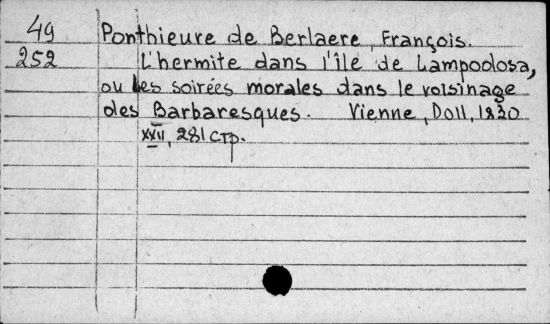 49 Ponthieure de Berlaere, François.
252 L'hermite dans l'île de Lampodosa,
ou les soirées morales dans le voisinage
des Barbaresques. Vienne, Doll, 1820
XXII, 281 стр.